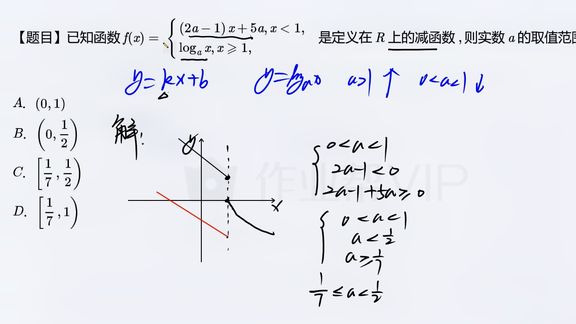 【题目】已知函数 f(x) = { (2a−1) x + 5a, x < 1, log_a x, x ⩾ 1, 是定义在 R 上的减函数，则实数 a 的取值范
y=kx+b y=log_a x a>1 ↑ 0<a<1 ↓
A. (0, 1)
B. (0, 1/2)
C. [1/7, 1/2)
D. [1/7, 1)
解:
y
x
0<a<1
2a-1<0
2a-1+5a≥0
0<a<1
a<1/2
a≥1/7
1/7≤a<1/2
作业帮VIP